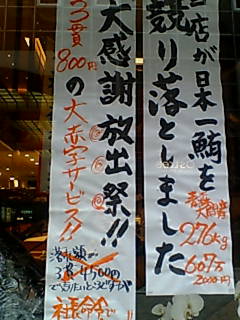 当店が日本一鮪を
競り落としました
青森大間産
276kg
607万
2000円
大感謝放出祭!!
3貫800円の大赤字サービス!!
3貫4500円
社長命令で